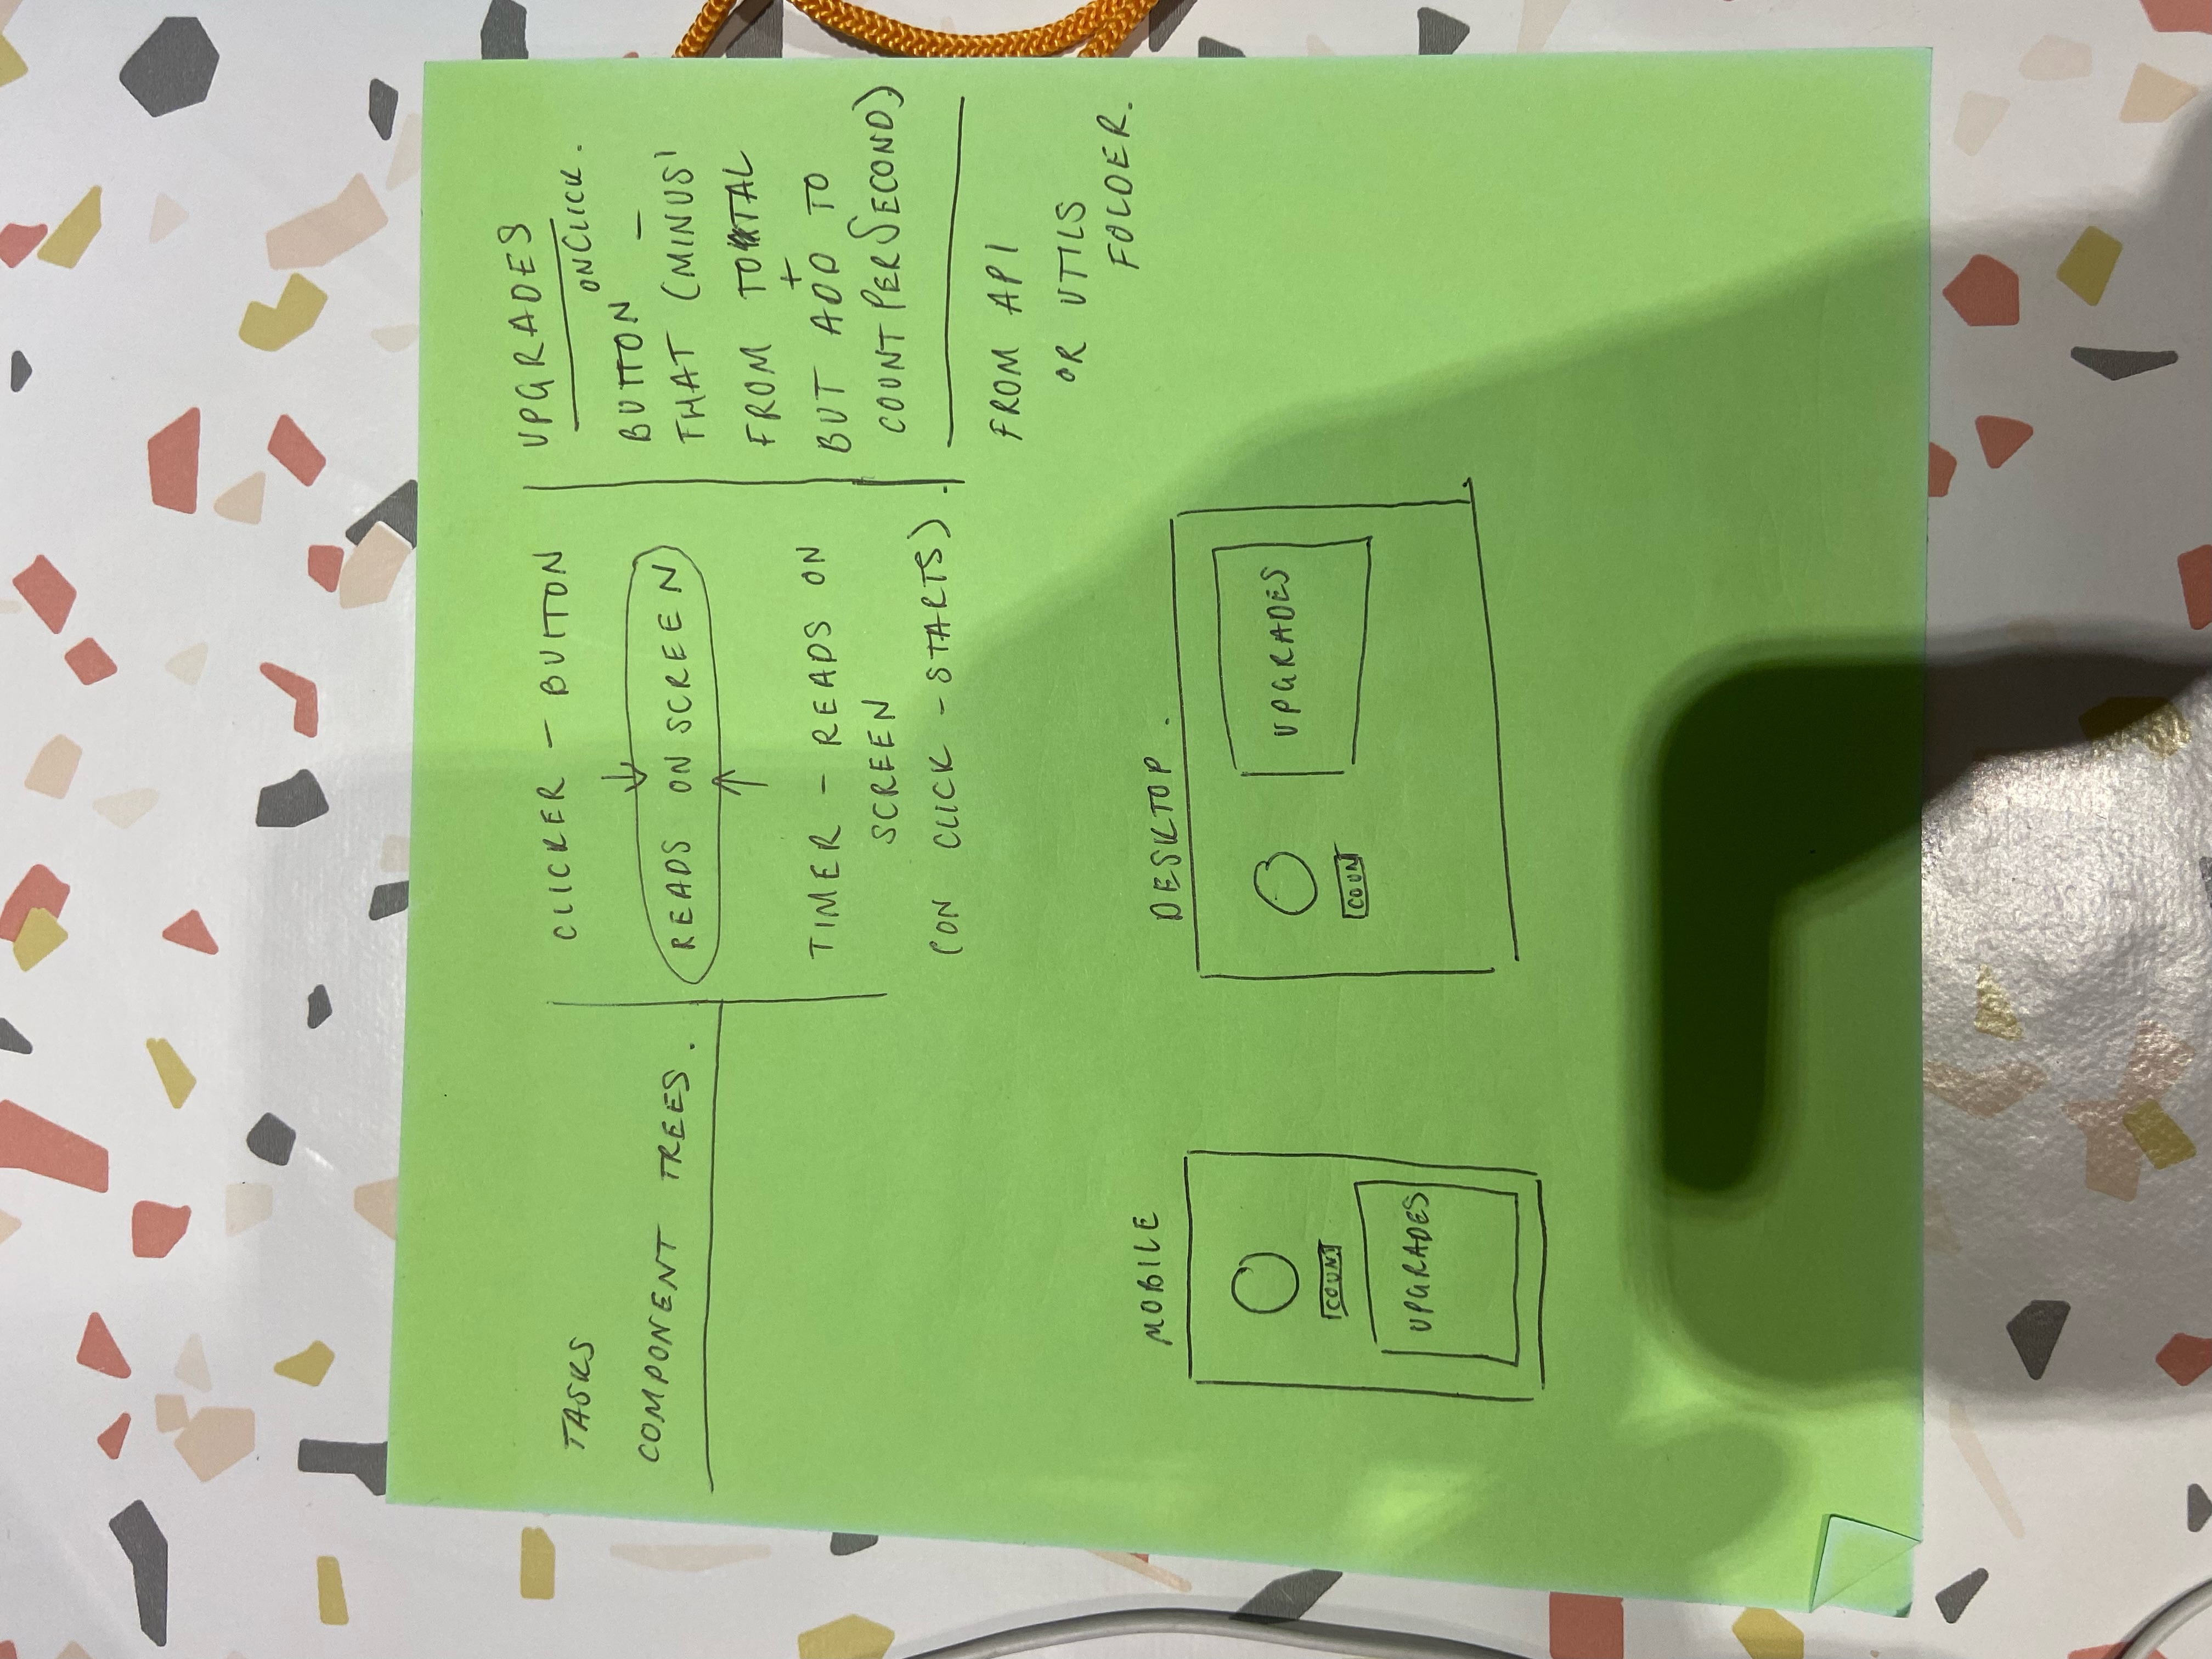 TASKS
COMPONENT TREES.
CLICKER - BUTTON
READS ON SCREEN
TIMER - READS ON
SCREEN
(ON CLICK - STARTS).
UPGRADES
ONCLICK.
BUTTON -
THAT (MINUS'
FROM TOTAL
+
BUT ADD TO
COUNT PER SECOND)
FROM API
OR UTILS
FOLDER.
MOBILE
COUNT
UPGRADES
DESKTOP.
COUN
UPGRADES